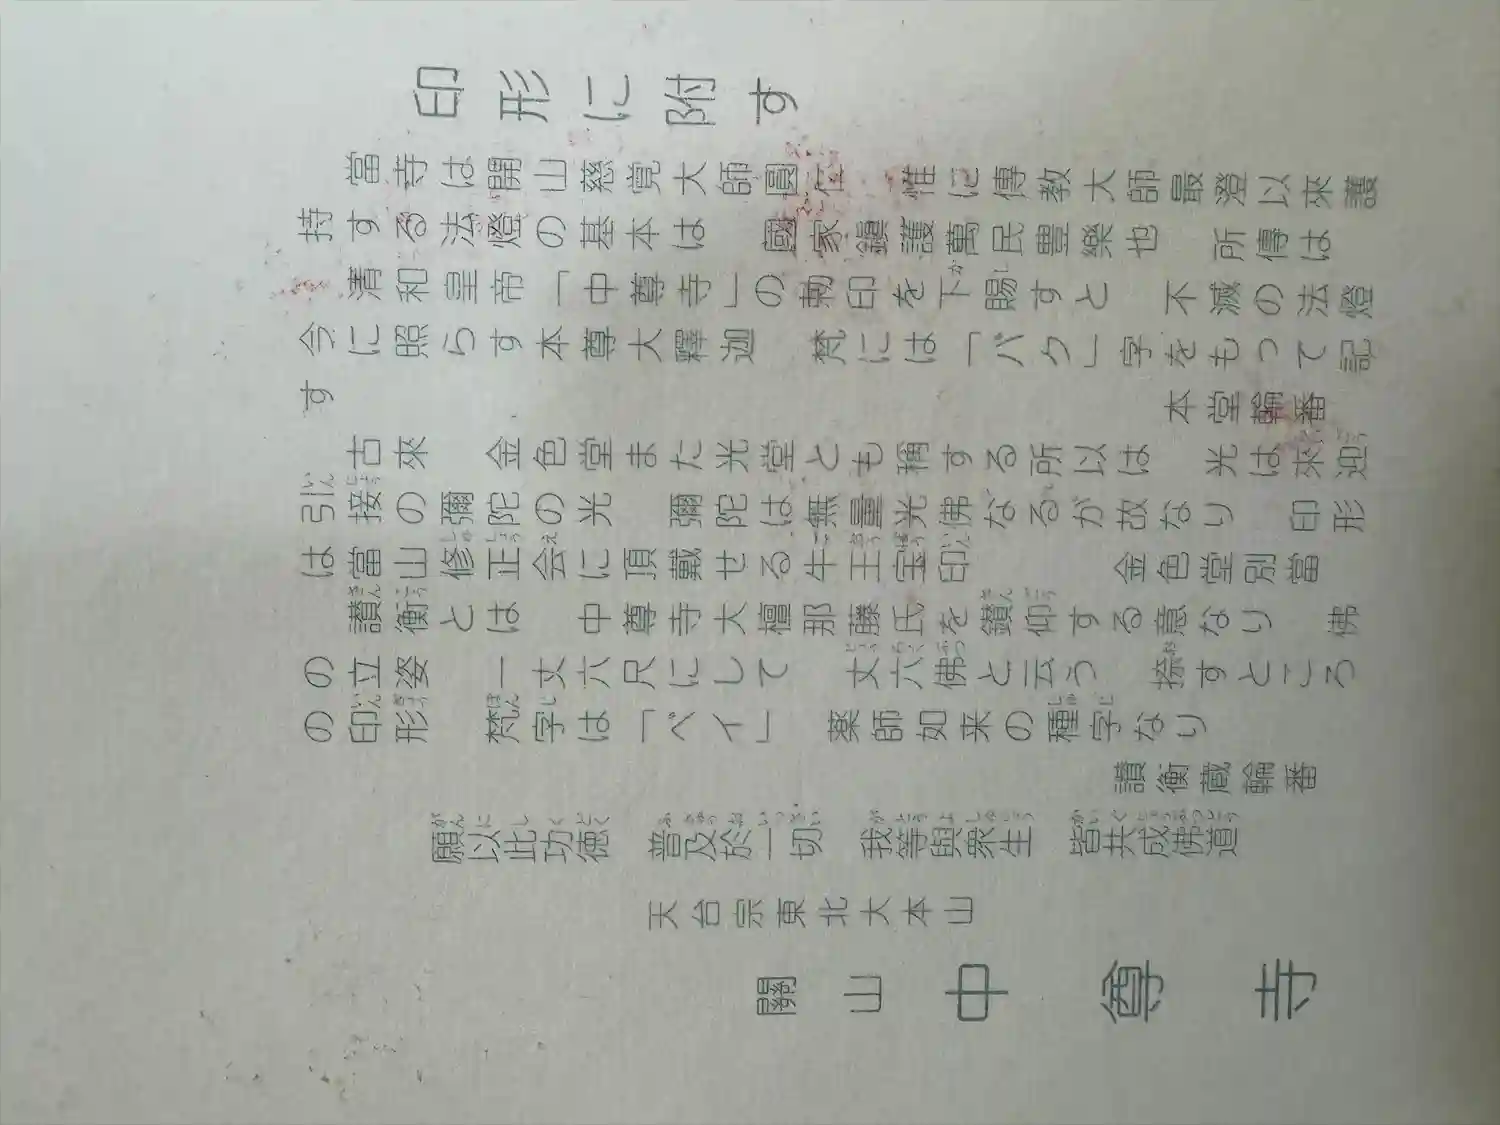 印形に附す
當寺は開山慈覚大師圓仁　惟に傳教大師最澄以來護
持する法燈の基本は　國家鎭護萬民豊樂也　所傳は
清和皇帝「中尊寺」の勅印を下賜すと　不滅の法燈
今に照らす本尊大釋迦　梵には「バク」字をもって記
す　本堂輪番
古來　金色堂また光堂とも稱する所以は　光は來迎
引接の彌陀の光　彌陀は無量光佛なるが故なり　印形
は當山修正会に頂戴せる牛王宝印　金色堂別當
讃衡とは　中尊寺大檀那藤氏を鑚仰する意なり　佛
の立姿　一丈六尺にして　丈六佛と云う　捺すところ
の印形　梵字は「ベイ」　薬師如来の種字なり
讃衡蔵輪番
願以此功徳　普及於一切　我等與衆生　皆共成佛道
天台宗東北大本山
關山中尊寺